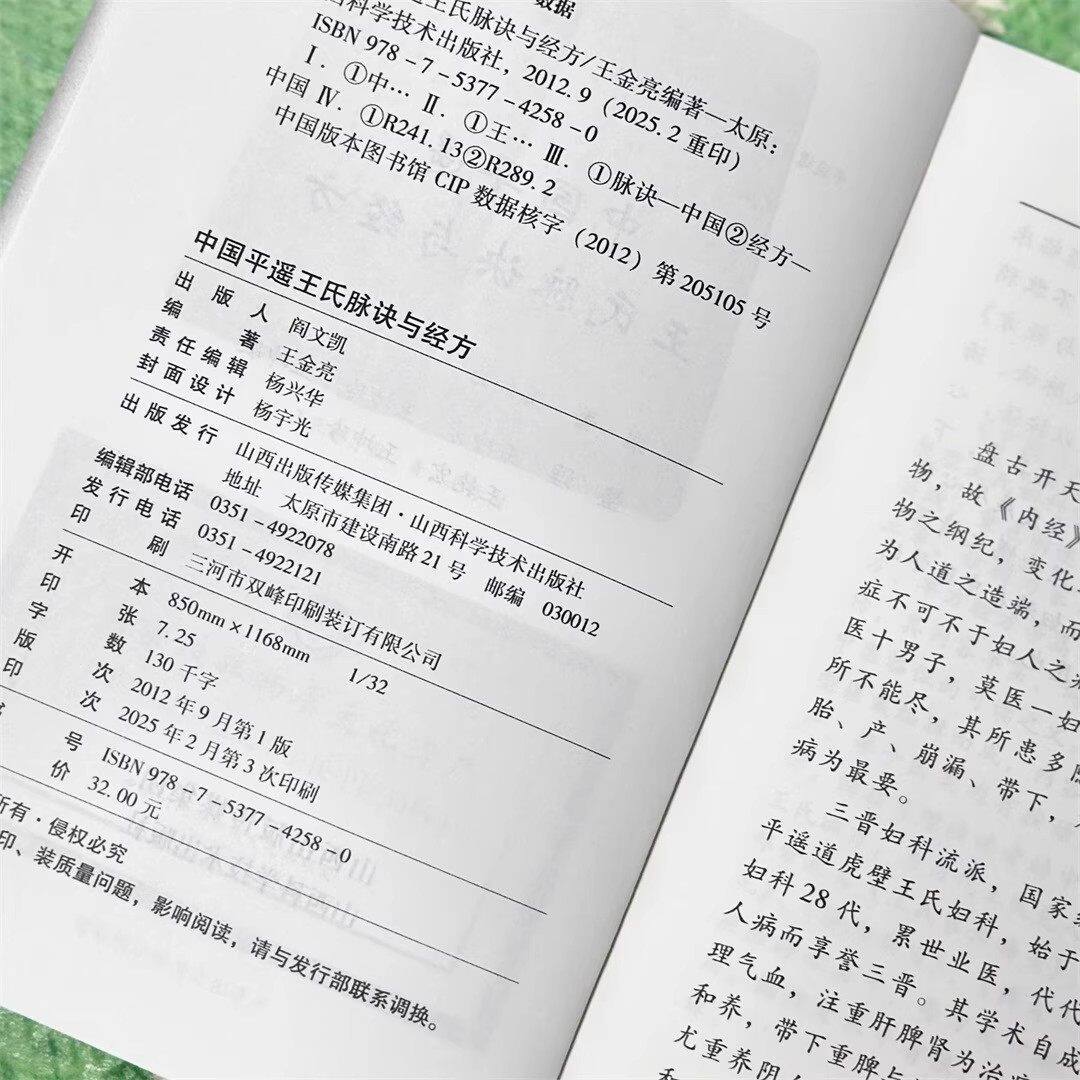 数据
王氏脉诀与经方/王金亮编著—太原：
山西科学技术出版社，2012.9（2025.2重印）
ISBN 978-7-5377-4258-0
Ⅰ.①中… Ⅱ.①王… Ⅲ.①脉诀—中国②经方—
中国 Ⅳ.①R241.13②R289.2
中国版本图书馆 CIP 数据核字（2012）第 205105 号
中国平遥王氏脉诀与经方
出版人 阎文凯
编著 王金亮
责任编辑 杨兴华
封面设计 杨宇光
出版发行 山西出版传媒集团·山西科学技术出版社
地址 太原市建设南路 21 号 邮编 030012
编辑部电话 0351-4922078
发行电话 0351-4922121
印刷 三河市双峰印刷装订有限公司
开本 850mm×1168mm 1/32
印张 7.25
字数 130 千字
版次 2012 年 9 月第 1 版
印次 2025 年 2 月第 3 次印刷
号 ISBN 978-7-5377-4258-0
价 32.00 元
所有·侵权必究
印、装质量问题，影响阅读，请与发行部联系调换。
盘古开天
物，故《内经》
物之纲纪，变化
为人道之造端，而
症不可不于妇人之
医十男子，莫医一妇
所不能尽，其所患多
胎、产、崩漏、带下，
病为最要。
三晋妇科流派，国家
平遥道虎壁王氏妇科，始于
妇科 28 代，累世业医，代代
人病而享誉三晋。其学术自成
理气血，注重肝脾肾为治
和养，带下重脾与
尤重养阴